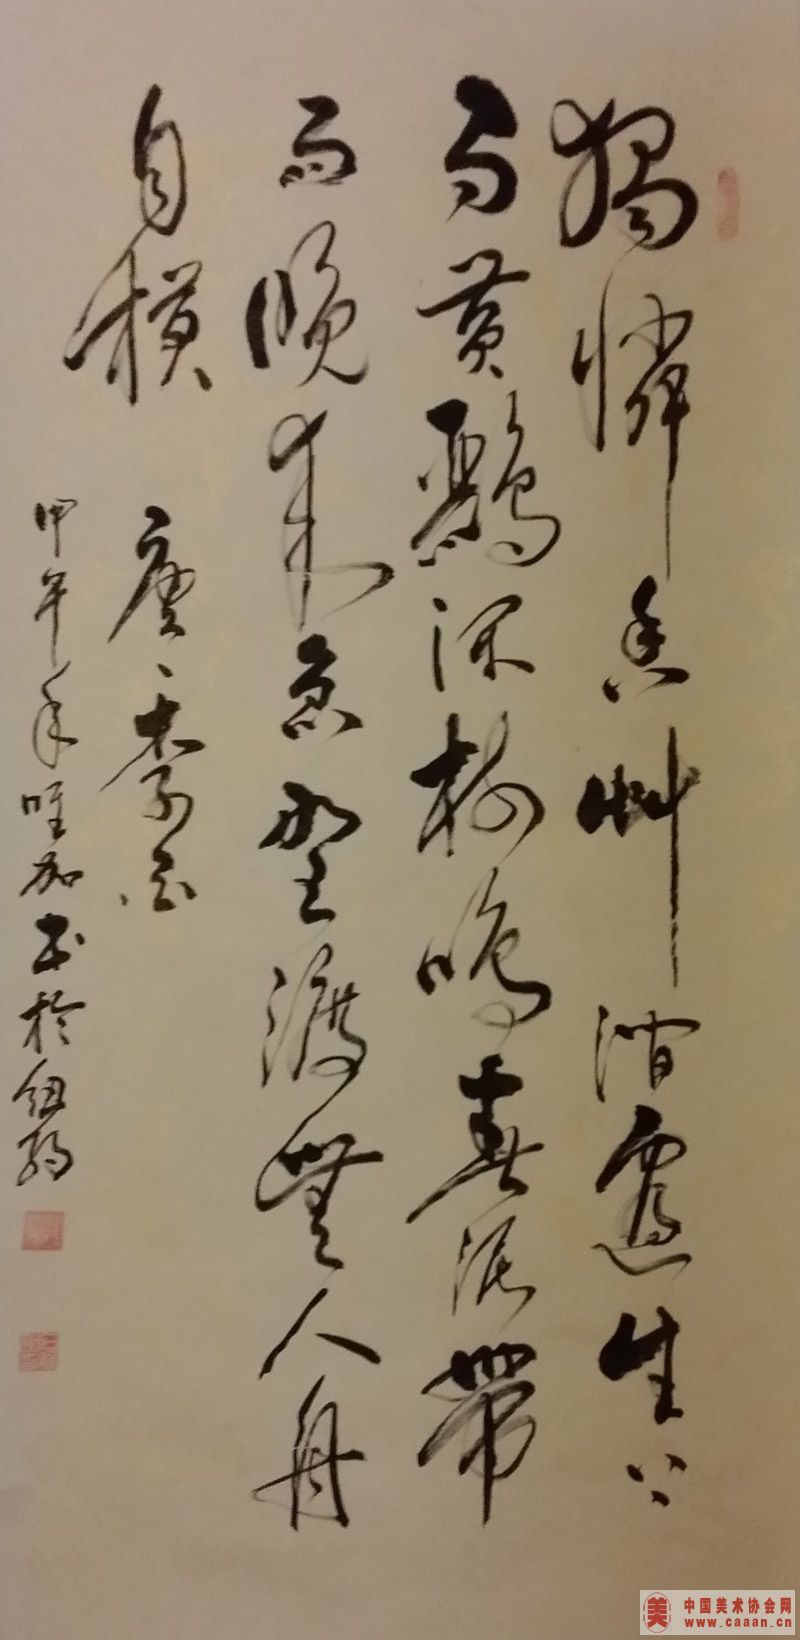 獨憐幽艸澗邊生上
有黃鸝深樹鳴春潮帶
雨晚來急野渡無人舟
自橫 唐
甲午年唯加书於紐約
中国美术协会网
www.caaan.cn
美